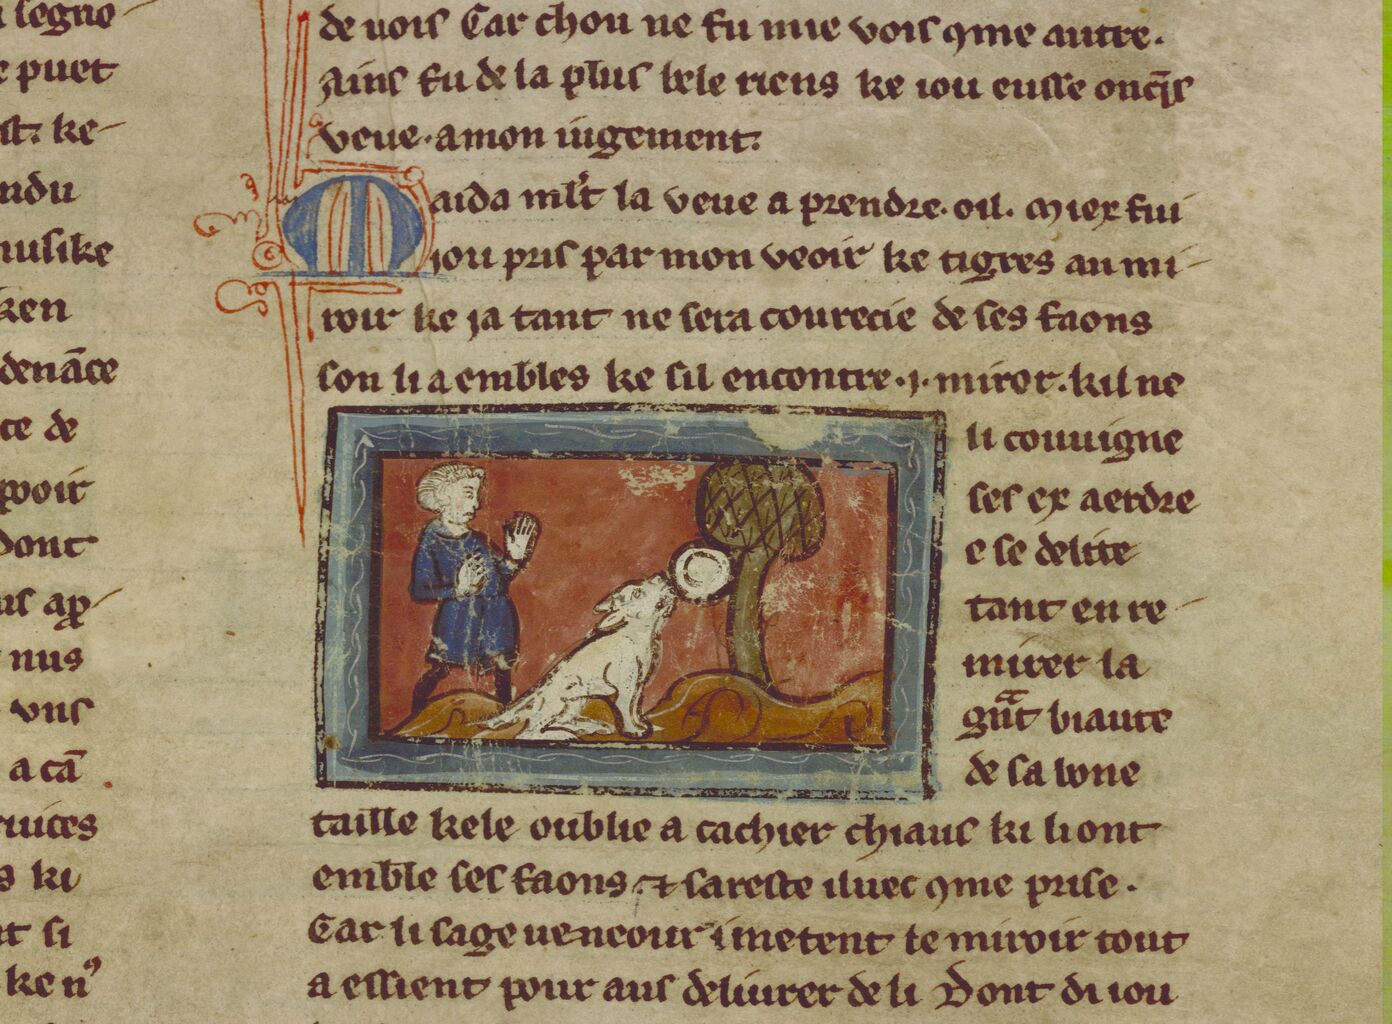 segno
e puet
st. ke-
ndu
musike
ken
denāce
ce de
pooir
Dont
us ap̱-
nus
vns
a cā
ruices
s ki
nt si
ken⁹
de uois Car chou ne fu mie vois ꝯme autre.
Ains fu de la plus bele riens ke iou eusse onq̄s
veue. amon iugement.
Maida ml't la veue a prendre. oil. Miex fui
iou pris par mon veoir ke tigres au mi-
roir ke ja tant ne sera courecie de ses faons
son li a embles ke sil encontre .j. miror. kil ne
li couuigne
ses ex aerdre
e se delite
tant en re-
mirer la
gᵃnt biaute
de sa bone
taille kele oublie a cachier chiaus ki li ont
emble ses faons. ⁊ sareste iluec ꝯme prise.
Car li sage ueneour i metent le miroir tout
a essient pour aus deliurer de li Dont di iou